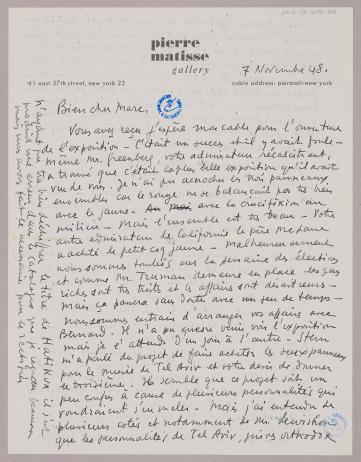 pierre
matisse
gallery
41 east 57th street, new york 22
cable address: piermati-new york
7 Novembre 48.
Bien cher Marc,
Vous avez reçu j'espère mon cable pour l'ouverture
de l'exposition - C'était un succès et il y avait foule -
même Mr. Greenberg, votre admirateur récalcitrant,
a trouvé que c'était la plus belle exposition qu'il avait
vue de vous. Je n'ai pu accrocher les trois panneaux
ensemble car le rouge ne se balançait pas très bien
avec le jaune. avec la crucifixion au
milieu - mais l'ensemble est très beau - Votre
autre admirateur de Californie le père McLane
a acheté le petit coq jaune - Malheureusement
nous sommes tombés sur la semaine des élections
et comme Mr. Truman demeure en place les gas
riches sont très tristes et les affaires sont désastreuses -
mais ça passera sans doute avec un peu de temps -
Nous sommes entrain d'arranger vos affaires avec
Bernard. Il n'a pu encore venir voir l'exposition
mais je l'attends d'un jour à l'autre - Stern
m'a parlé du projet de faire acheter les deux panneaux
pour le musée de Tel Aviv et votre désir de donner
le troisième. Il semble que ce projet soit un
peu confus à cause de plusieurs personnalités qui
voudraient s'en mêler - Mais j'ai entendu de
plusieurs cotés et notamment de Mr. Lewisohn
que les personnalités de Tel Aviv, juives orthodox
n'ayant déchiffrer le titre de Hatikva il s'est
produit une erreur dans le catalogue que je regrette beaucoup
mais nous avons fait le nécessaire pour la rectifier